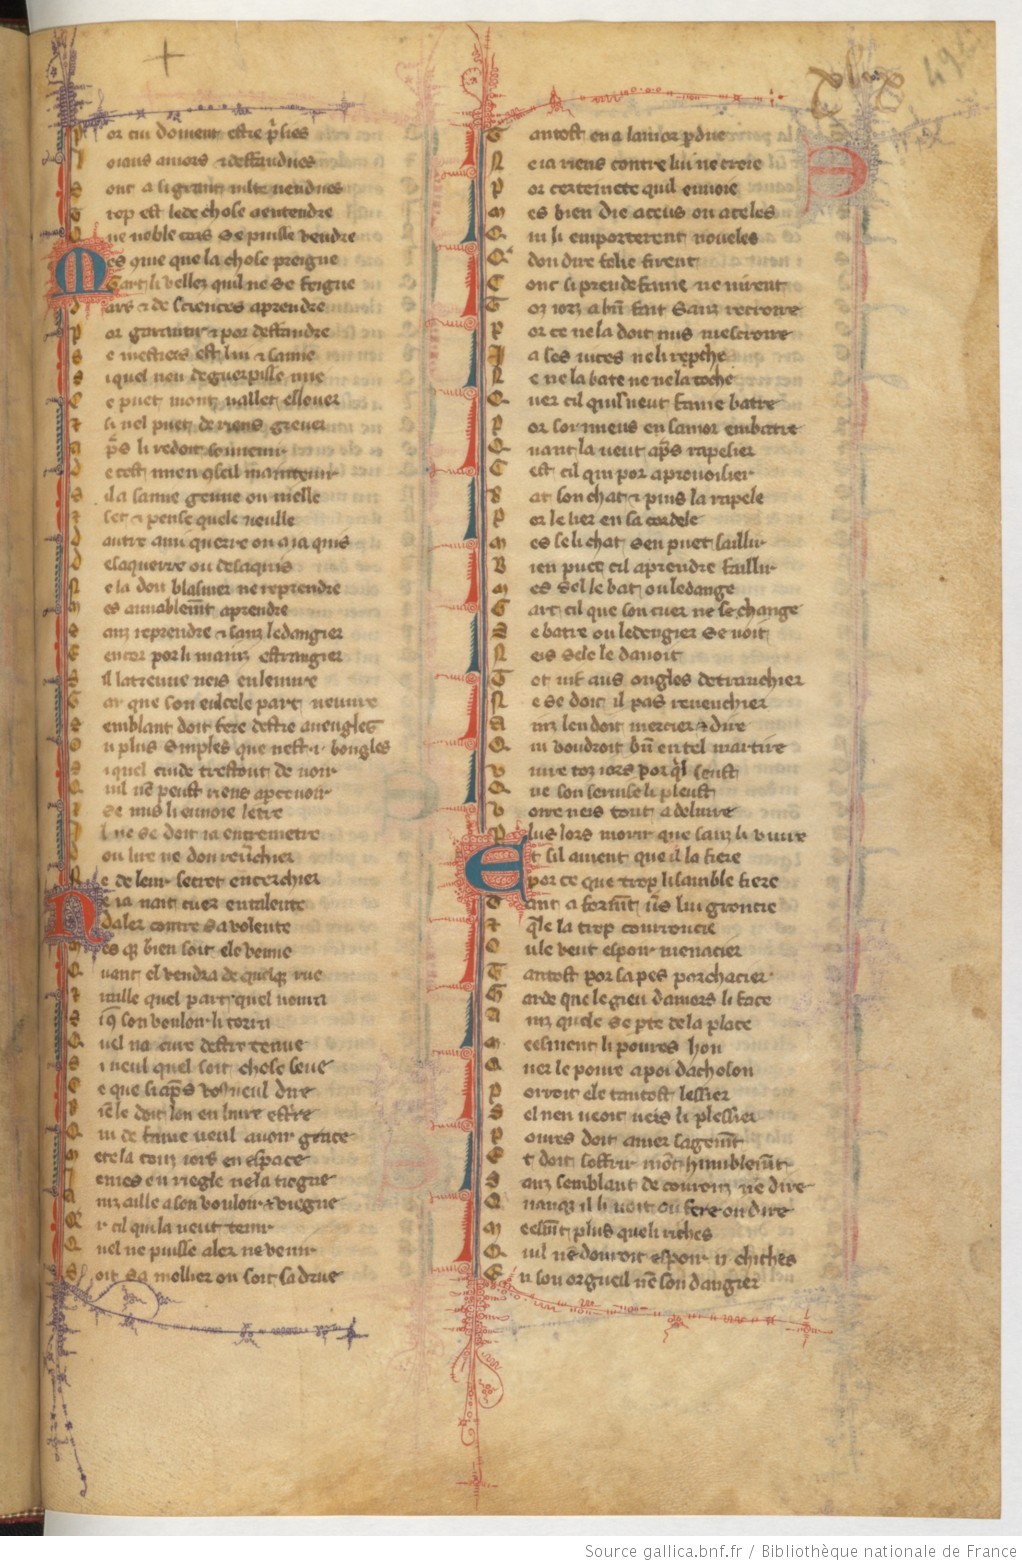 or cui doivent estre prisies
oiaus amors ⁊ deffandues
S ont a si grant vilte vendues
T rop est lede chose a entendre
Q ue noble cors se puisse vendre
M es que que la chose preigne
G art li vallez quil ne se feigne
D ars ⁊ de sciences aprendre
P or garantir ⁊ por deffandre
S e mestiers est lui ⁊ samie
S i quel nen deguerpisse mie
C e puet mout vallet eslever
⁊ si nel puet de riens grever
A pres li redoit sovenir
D e cest mien conseil maintenir
S il a samie genne ou vielle
⁊ set ⁊ pense quele veulle
autre ami querre ou a ia quis
D es aquerre ou des aquis
N e la doit blasmer ne reprendre
M es amiablement aprendre
S anz reprendre ⁊ sanz ledangier
E ncor por li mainz estrangier
S il la treuve neis en leuvre
G art que son eul cele part neuvre
S emblant doit fere destre avengles
O u plus simples que nest .i. bougles
S i quel cuide trestout de voir
Q uil nen peust riens apercevoir
⁊ se nus li envoie letre
I l ne se doit ia entremetre
Dou lire ne dou reverchier
N e de leur secret encerchier
N e ia nait cuer entalente
Daler contre sa volente
M es que bien soit ele venue
Q uant el vendra de quelque rue
⁊ raille quel part quel vourra
S i que son vouloir li torra
Q uel na cure destre tenue
S i veul quel soit chose seue
C e que si apres vos veul dire
B ien le doit lon en livre escrire
Q ui de fame veul avoir grace
M ete la touz iors en espace
I amés en riegle ne la tiegne
A inz aille a son vouloir ⁊ viegne
C ar cil qui la veut tenir
Q uel ne puisse aler ne venir
S oit sa mollier ou soit sa drue
T antost en a lamor perdue
N e ia riens contre lui ne croie
P or certeinete quil en noie
M es bien die a ceus ou a celes
Q ui li emporterent noveles
Q dou dire folie firent
C onc si preude fame ne virent
T oz iorz a bien fait sanz recroire
P or ce ne la doit nus mescroire
I a ses vices ne li repche
N e ne la bate ne ne la toche
Q uer cil quil veut fame batre
P or soi miens en samor embatre
Q uant la veut apres rapesier
C est cil qui por aprovoisier
B at son chat ⁊ puis la rapele
P or le lier en sa cordele
M es se li chat sen puet saillir
B ien puet cil aprendre faillir
M es sel le bat ou ledange
G art cil que son cuer ne se change
S e batre ou ledengier se voit
N eis se ele le davoit
T ot vif aus ongles detranchier
N e se doit il pas revenchier
A inz len doit mercier ⁊ dire
Q ui voudroit bien en tel martire
V ivre toz iors por quil seust
Q ue son servise li pleust
V oire neis tout a delivre
P lus lors morir que sanz li vivre
E t sil avient que il la fiere
por ce que trop li samble fiere
T ant a forment vers lui groucie
⁊ quele la trop courroucie
O u le veut espoir menacier
T antost por sa pes porchacier
G arde que le gieu damors li face
A inz quele se parte de la place
M eesment li poures hon
Q uer le poure a poi dacheson
P orroit ele tantost lessier
S el nen veoit neis li plessier
P oures doit amer sagement
E t doit soffrir mont humblement
S anz semblant de courouz ne dire
Q uanque il li voit ou fere ou dire
M eesment plus que li riches
Q uil ne douroit espoir .ii. chiches
E n son orgueil nen son dangier